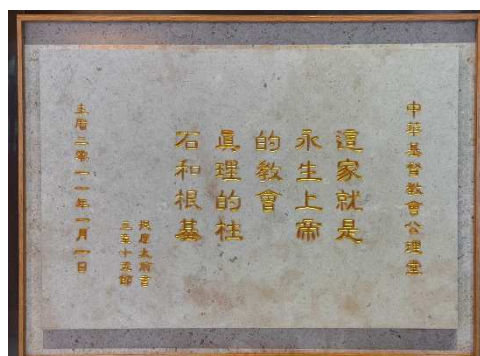 中華基督教會公理堂
這家就是
永生上帝
的教會
真理的柱
石和根基
提摩太前書
三章十五節
主曆二零一一年一月一日